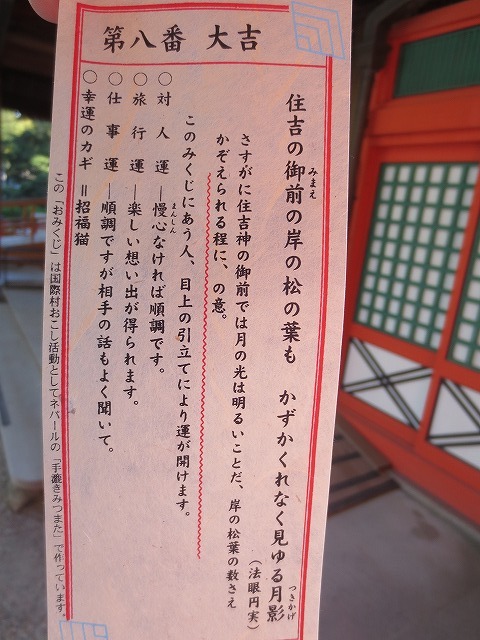 第八番 大吉
住吉の御前の岸の松の葉も かずかくれなく見ゆる月影
みまえ
つきかげ
(法眼円実)
さすがに住吉神の御前では月の光は明るいことだ、岸の松葉の数さえ
かぞえられる程に、の意。
このみくじにあう人、目上の引立てにより運が開けます。
○対人運―慢心なければ順調です。
まんしん
○旅行運―楽しい想い出が得られます。
○仕事運―順調ですが相手の話もよく聞いて。
○幸運のカギ=招福猫
この「おみくじ」は国際村おこし活動としてネパールの「手漉きみつまた」で作っています。